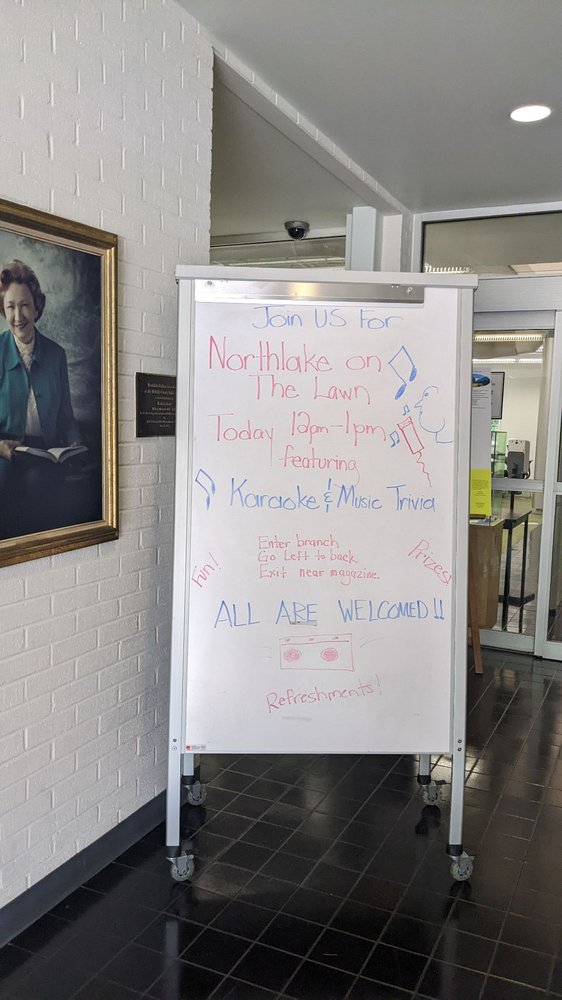 Join US For
Northlake on
The Lawn
Today 12pm-1pm
featuring
Karaoke & Music Trivia
Enter branch
Go Left to back
Exit near magazine.
Fun!
Prizes!
ALL ARE WELCOMED!!
Refreshments!